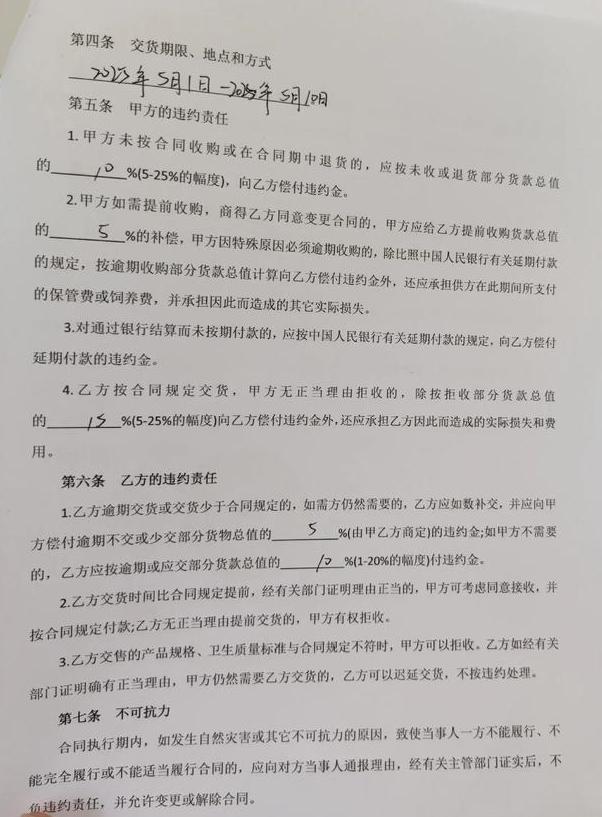 第四条 交货期限、地点和方式
2023年5月1日-2023年5月10日
第五条 甲方的违约责任
1.甲方未按合同收购或在合同期中退货的，应按未收或退货部分货款总值
的 10 %(5-25%的幅度)，向乙方偿付违约金。
2.甲方如需提前收购，商得乙方同意变更合同的，甲方应给乙方提前收购货款总值
的 5 %的补偿，甲方因特殊原因必须逾期收购的，除比照中国人民银行有关延期付款
的规定，按逾期收购部分货款总值计算向乙方偿付违约金外，还应承担供方在此期间所支付
的保管费或饲养费，并承担因此而造成的其它实际损失。
3.对通过银行结算而未按期付款的，应按中国人民银行有关延期付款的规定，向乙方偿付
延期付款的违约金。
4.乙方按合同规定交货，甲方无正当理由拒收的，除按拒收部分货款总值
的 15 %(5-25%的幅度)向乙方偿付违约金外,还应承担乙方因此而造成的实际损失和费
用。
第六条 乙方的违约责任
1.乙方逾期交货或交货少于合同规定的，如需方仍然需要的，乙方应如数补交，并应向甲
方偿付逾期不交或少交部分货物总值的 5 %(由甲乙方商定)的违约金;如甲方不需要
的，乙方应按逾期或应交部分货款总值的 10 %(1-20%的幅度)付违约金。
2.乙方交货时间比合同规定提前，经有关部门证明理由正当的，甲方可考虑同意接收，并
按合同规定付款;乙方无正当理由提前交货的，甲方有权拒收。
3.乙方交售的产品规格、卫生质量标准与合同规定不符时，甲方可以拒收。乙方如经有关
部门证明确有正当理由，甲方仍然需要乙方交货的，乙方可以迟延交货，不按违约处理。
第七条 不可抗力
合同执行期内，如发生自然灾害或其它不可抗力的原因，致使当事人一方不能履行、不
能完全履行或不能适当履行合同的，应向对方当事人通报理由，经有关主管部门证实后，不
负违约责任，并允许变更或解除合同。